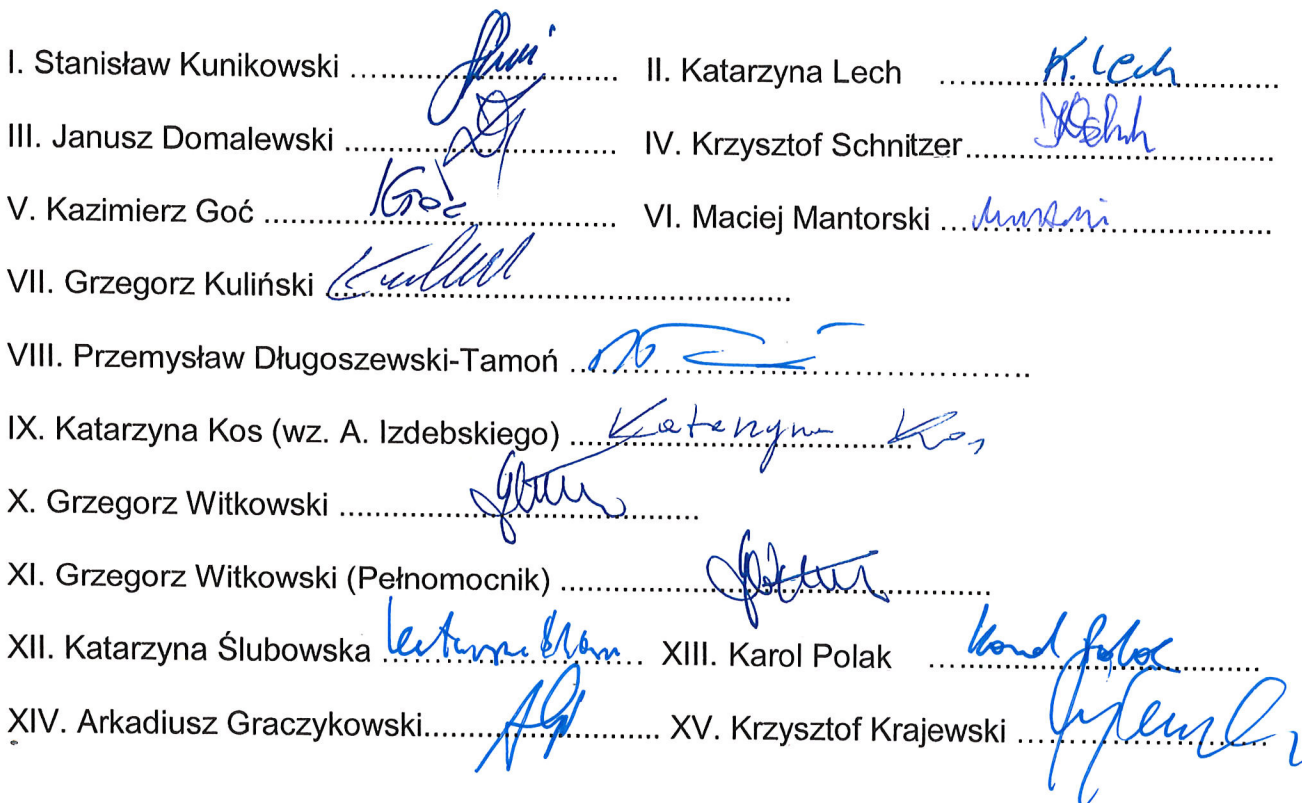 I. Stanisław Kunikowski .............................. II. Katarzyna Lech .............................. K. Lech
III. Janusz Domalewski .............................. IV. Krzysztof Schnitzer ..............................
V. Kazimierz Goć .............................. KGoć VI. Maciej Mantorski ..............................
VII. Grzegorz Kuliński ..............................
VIII. Przemysław Długoszewski-Tamoń ..............................
IX. Katarzyna Kos (wz. A. Izdebskiego) .............................. Katarzyna Kos
X. Grzegorz Witkowski ..............................
XI. Grzegorz Witkowski (Pełnomocnik) ..............................
XII. Katarzyna Ślubowska .............................. XIII. Karol Polak .............................. Karol Polak
XIV. Arkadiusz Graczykowski .............................. XV. Krzysztof Krajewski ..............................